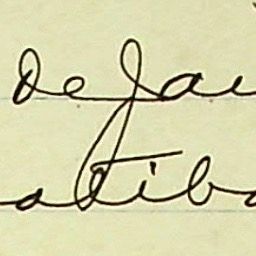 de Jan
atiba